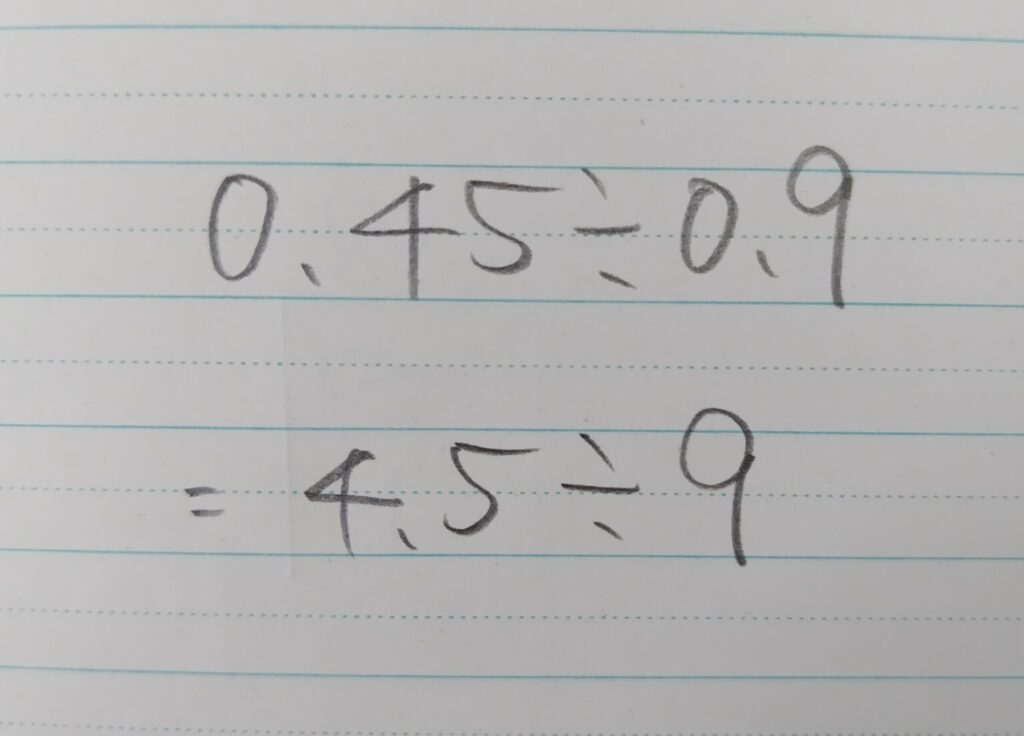 0.45÷0.9
=4.5÷9